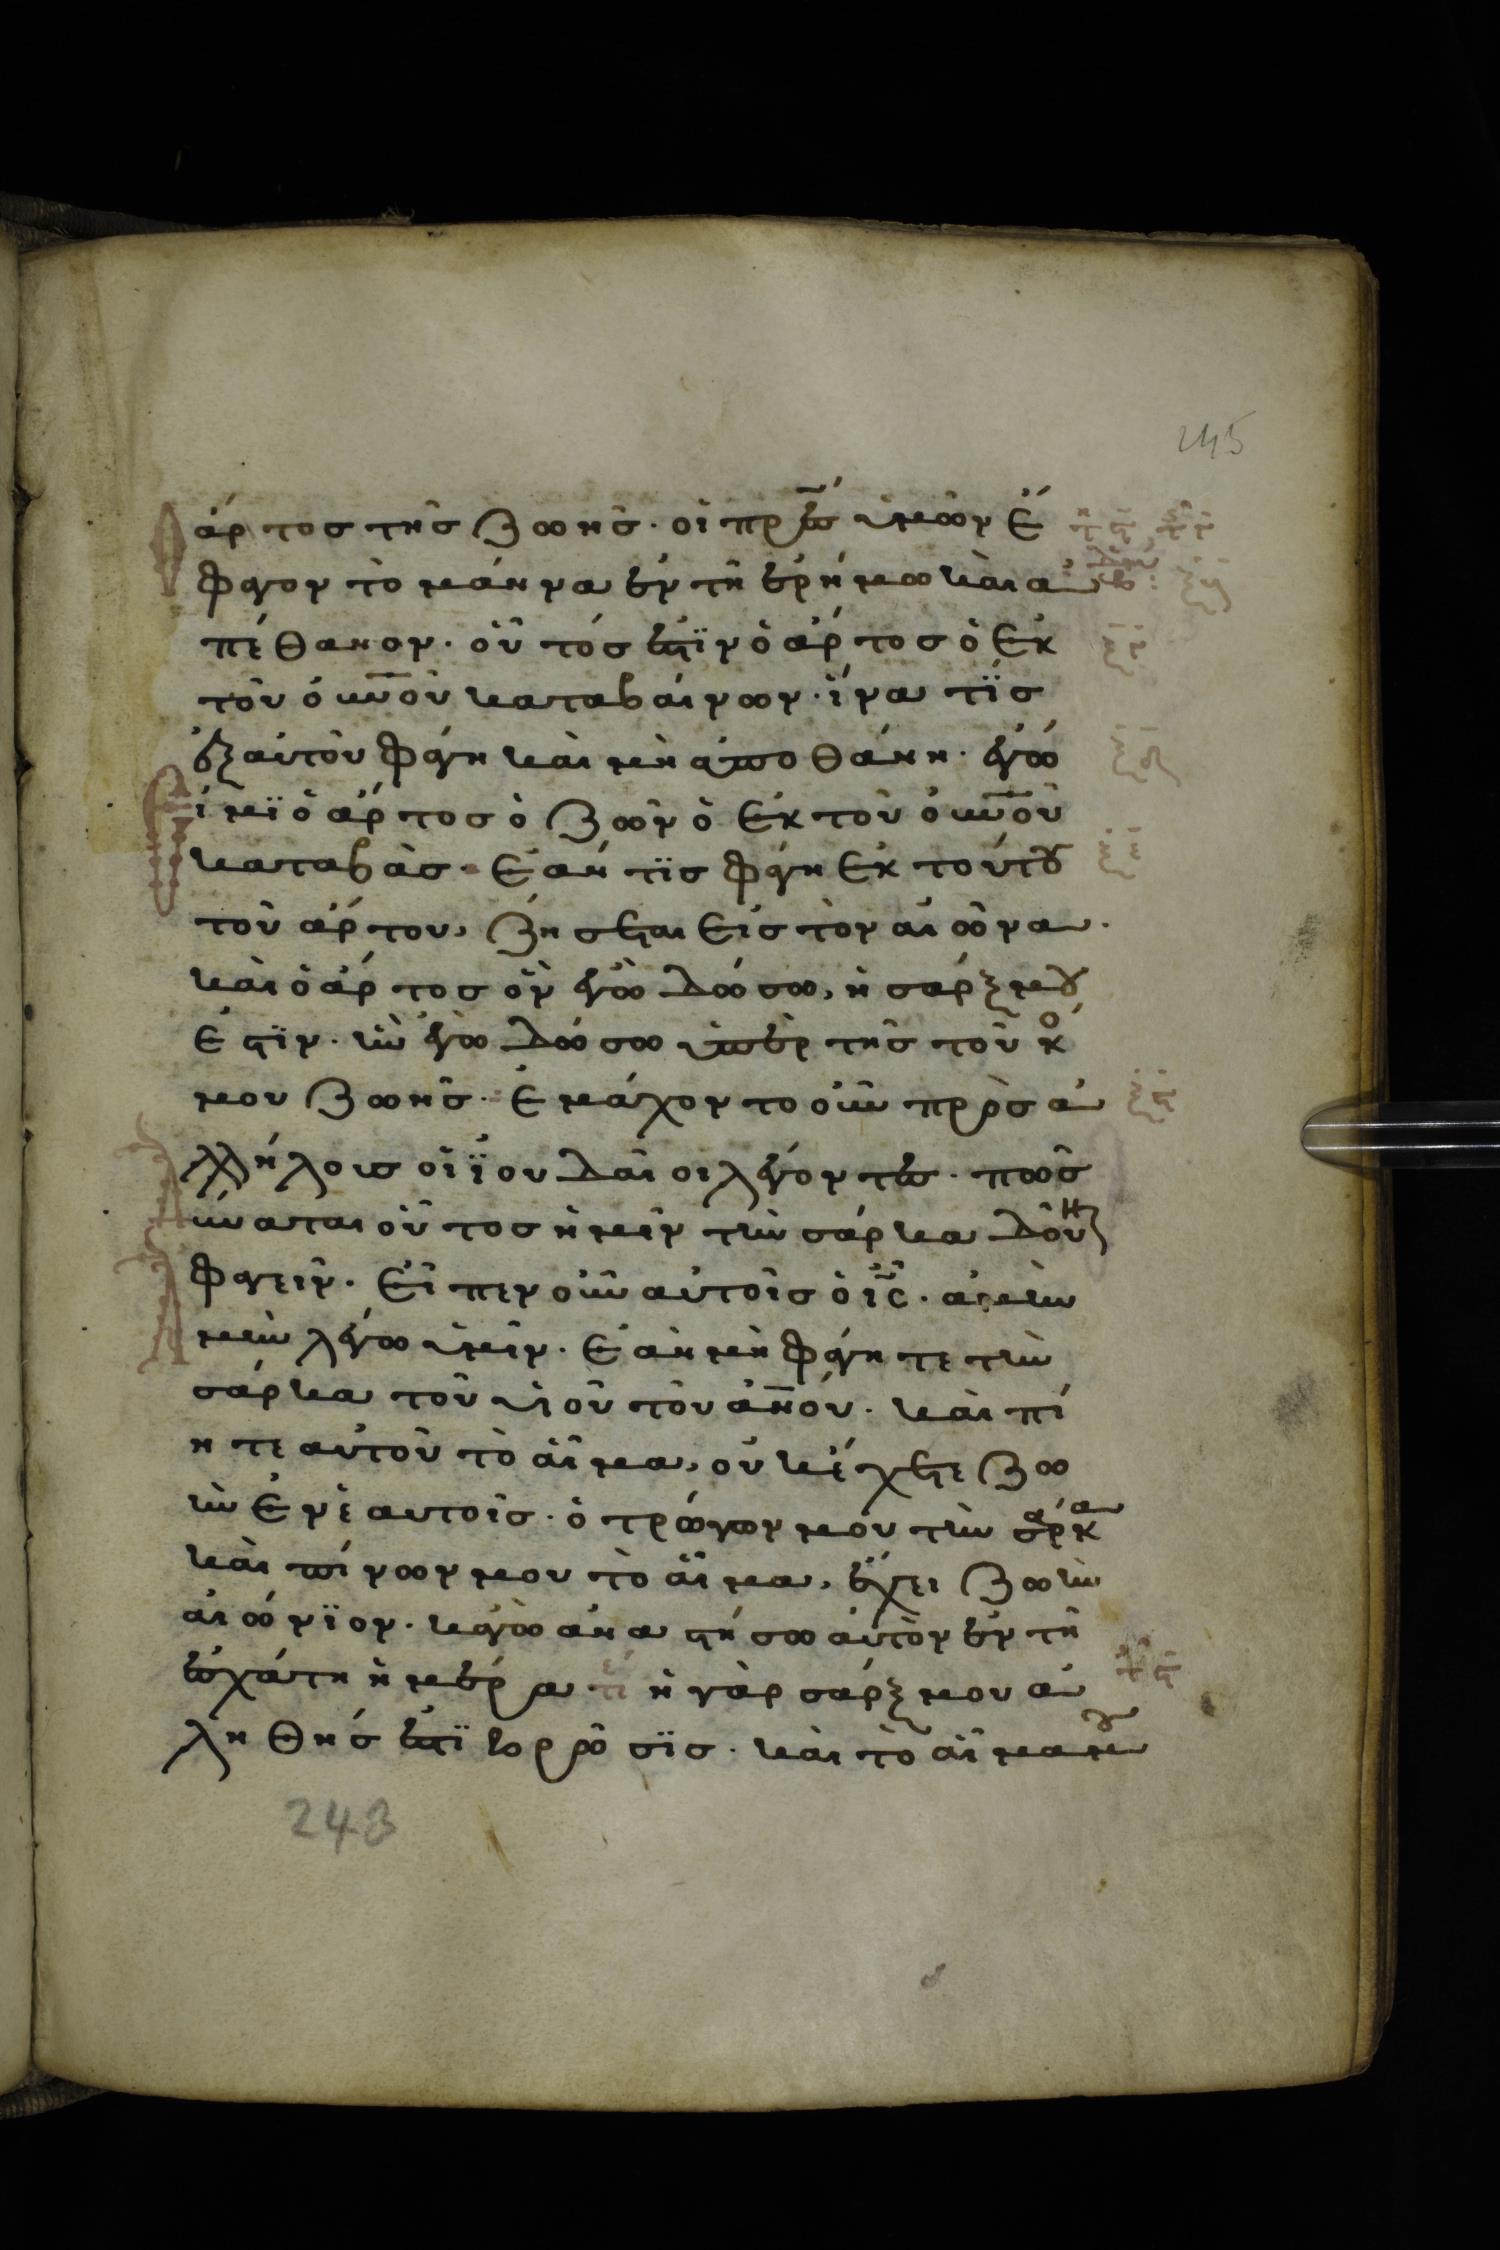 245
ἄρτος τῆς ζωῆς· οἱ πρ̅ε̅ς ὑμῶν ἔ
φαγον τὸ μάννα ἐν τῆ ἐρήμω καὶ ἀ
πέθανον· οὗτός ἐστϊν ὁ ἄρτος ὁ ἐκ
τοῦ ο̅υ̅ν̅οῦ καταβαίνων· ἵνα τϊς
ἐξ αὐτοῦ φάγη καὶ μὴ ἀποθάνη· ἐγώ
εἰμϊ ὁ ἄρτος ὁ ζῶν ὁ ἐκ τοῦ ο̅υ̅ν̅οῦ
καταβάς· ἐάν τϊς φάγη ἐκ τούτου
τοῦ ἄρτου, ζήσεται εἰς τὸν αἰῶνα·
καὶ ὁ ἄρτος ὃν ἐγὼ δώσω, ἡ σάρξ μου
ἐστϊν· ἣν ἐγὼ δώσω ὑπὲρ τῆς τοῦ κό
μου ζωῆς· ἐμάχοντο οὖν πρὸς ἀ
λλήλους οἱ ϊουδαῖοι λέγοντες· πῶς
δύναται οὗτος ἡμῖν τὴν σάρκα δοῦναι
φαγεῖν· εἶπεν οὖν αὐτοῖς ὁ ι̅ς̅· ἀμὴν
ἀμὴν λέγω ὑμῖν· ἐὰν μὴ φάγητε τὴν
σάρκα τοῦ υἱοῦ τοῦ α̅ν̅ου· καὶ πί
ητε αὐτοῦ τὸ αἷμα, οὐκ ἔχετε ζω
ὴν ἐν ἑαυτοῖς· ὁ τρώγων μου τὴν σάρκα
καὶ πίνων μου τὸ αἷμα, ἔχει ζωὴν
αἰώνϊον· κἀγὼ ἀναστήσω αὐτὸν ἐν τῆ
ἐσχάτη ἡμέρα ἡ γὰρ σάρξ μου ἀ
ληθής ἐστϊ βρῶσϊς· καὶ τὸ αἷμα μου
243